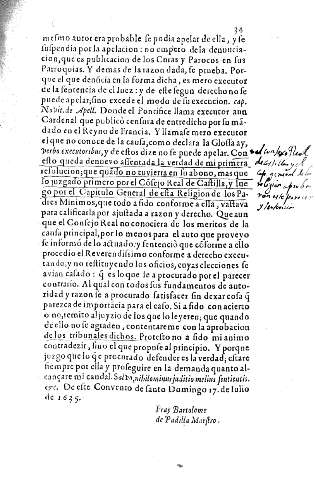 34
mesmo autor era probable se podia apelar de ella, y se
suspendia por la apelacion: no empero de la denuncia-
cion, que es publicacion de los Curas y Parocos en sus
Parroquias. Y demas de la razon dada, se prueba. Por-
que el que denũcia en la forma dicha, es mero executor
de la sentencia de el Iuez: y de este segun derecho no se
puede apelar, sino excede el modo de su execucion. cap.
Novit. de Apell. Donde el Pontifice llama executor aun
Cardenal que publicò censura de entredicho por su mã-
dado en el Reyno de Francia. Y llamase mero executor
el que no conoce de la causa, como declara la Glosa ay,
verbo executoribus, y de estos dize no se puede apelar. Con
esto queda denuevo assentada la verdad de mi primera
resolucion; que quãdo no tuviera en su abono, mas que
ser juzgado primero por el Cõsejo Real de Castilla, y lue
go por el Capitulo General de esta Religion de los Pa-
dres Minimos, que todo a sido conforme a ella, vastava
para calificarla por ajustada a razon y derecho. Que aun
que el Consejo Real no conociera de los meritos de la
causa principal, por lo menos para el auto que proveyo
se informó de lo actuado; y sentenciò que cõforme a ello
procedio el Reverendissimo conforme a derecho execu-
tando, y no restituyendo los oficios, cuyas elecciones se
avian casado: q̃ es lo que se a procurado por el parecer
contrario. Al qual con todos sus fundamentos de auto-
ridad y razon se a procurado satisfacer sin dexar cosa q̃
parezca de importãcia para el caso. Si a sido con acierto
o no, remito al juyzio de los que lo leyeren; que quando
de ello no se agraden, contentareme con la aprobacion
de los tribunales dichos. Protesto no a sido mi animo
contradezir, sino el que propose al principio. Y porque
juzgo que lo q̃ e procurado defender es la verdad; estare
siempre por ella y proseguire en la demanda quanto al-
cançare mi caudal. Salvo, nihilominus juditio melius sentientis
etc. De este Convento de santo Domingo 17. de Iulio
de 1635.
Fray Bartolome
de Padilla Maestro.